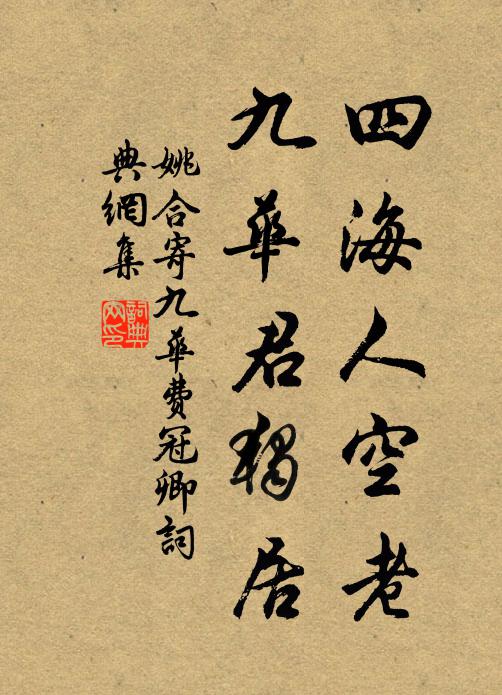 四海人空老
九華君獨居
姚合寄九華費冠卿詞
典網集
詞典網印